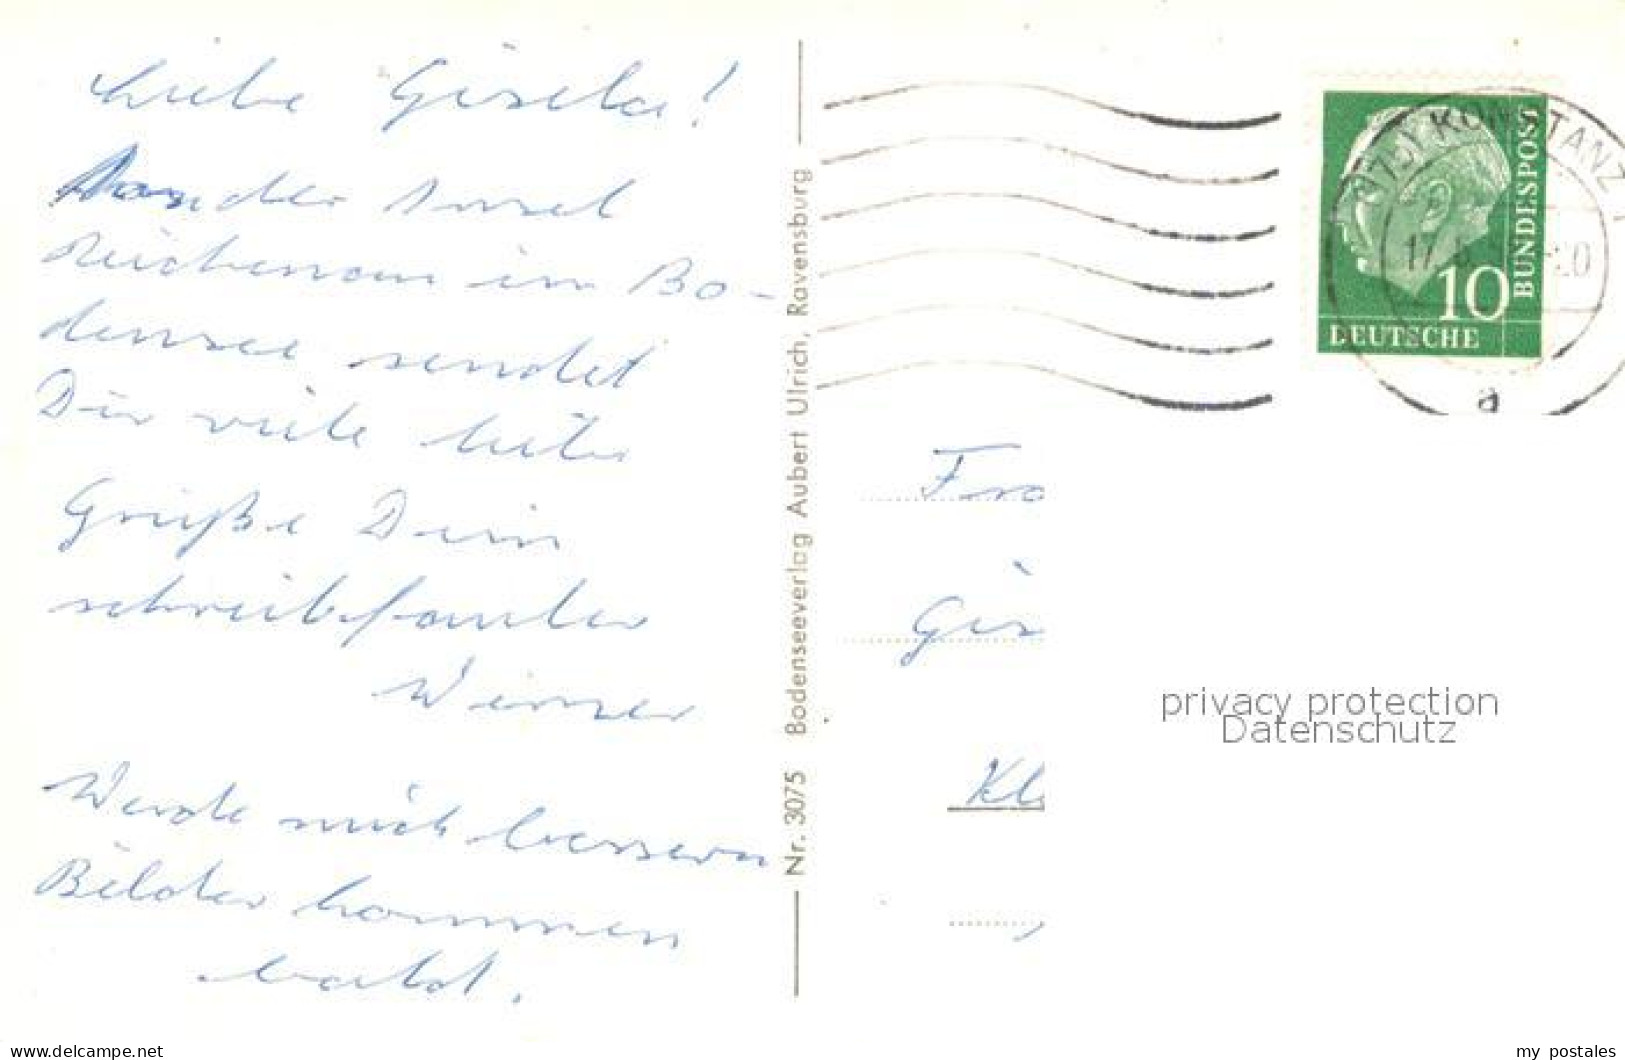 Liebe Gisela!
Von der Insel
Reichenau im Bo-
densee sendet
Dir viele liebe
Grüße Dein
schreibfauler
Werner
Werde mich bessern
Bilder kommen
bald.
Nr. 3075 Bodenseeverlag Aubert Ulrich, Ravensburg
KONSTANZ
17.
-20
a
10
DEUTSCHE
BUNDESPOST
Fra
Gis
Kl
privacy protection
Datenschutz
www.ansichtskartenversand.com
my postales